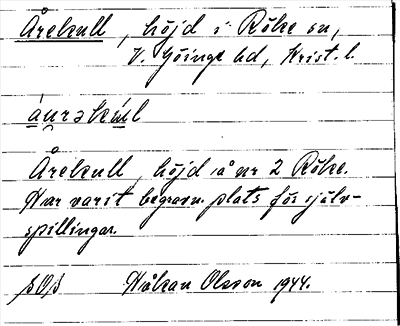 Årekull, höjd i Röke sn,
V. Göinge hd, Krist. l.
áurəkùl
Årekull, höjd å nr 2 Röke.
Har varit begravn. plats för själv-
spillingar.
Håkan Olsson 1944.